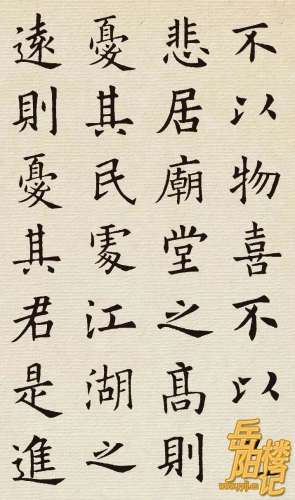 不以物喜不以
悲居廟堂之髙則
憂其民處江湖之
遠則憂其君是進
岳阳楼记